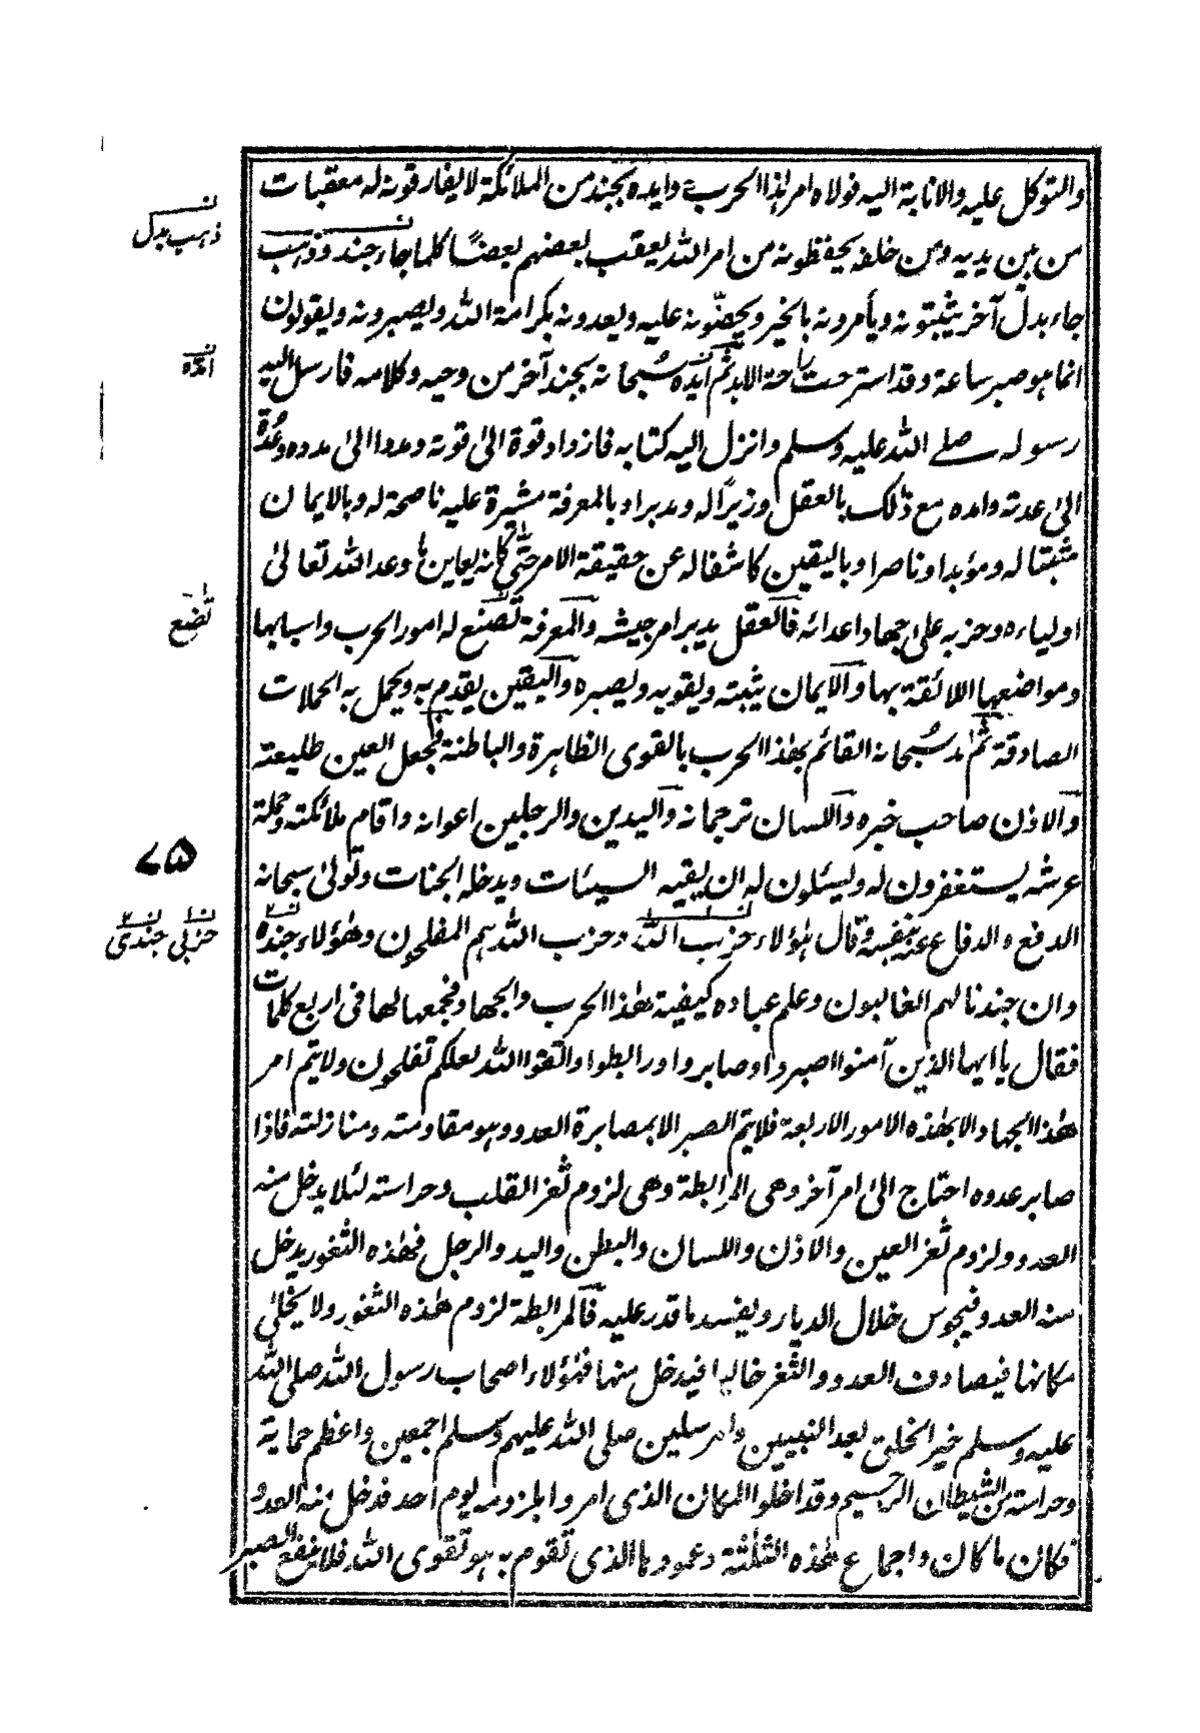 والتوكل عليه والانابة اليه فولاه امر هذا الحرب وايده بجند من الملائكة لا يفارقونه له معقبات
من بين يديه ومن خلفه يحفظونه من امر الله يعقب بعضهم بعضًا كلما جاء جند وذهب
جاء بدل آخر يثبتونه ويأمرونه بالخير ويحضّونه عليه ويعدونه بكرامة الله ويصبرونه ويقولون
انما هو صبر ساعة وقد استرحت راحة الابد ثم ايده سُبحانه بجند آخر من وحيه وكلامه فارسل اليه
رسوله صلے الله عليه وسلم وانزل اليه كتابه فازداد قوة الىٰ قوته ومددا الىٰ مدده وعُدّة
الىٰ عدته وامده مع ذٰلك بالعقل وزيرًا له ومدبرا وبالمعرفة مشيرة عليه ناصحة له وبالايمان
مثبتا له ومؤيدا وناصرا وباليقين كاشفا له عن حقيقة الامر حتّٰى كانه يعاين ما وعد الله تعالىٰ
اولياءه وحزبه علىٰ جهاد اعدائه فالعقل يدبر امر جيشه والمعرفة تصنع له امور الحرب واسبابها
ومواضعها اللائقة بها والايمان يثبته ويقويه ويصبره واليقين يقدم به ويحمل به الحملات
الصادقة ثم مد سُبحانه القائم بهٰذا الحرب بالقوى الظاهرة والباطنة فجعل العين طليعته
والاذن صاحب خبره واللسان ترجمانه واليدين والرجلين اعوانه واقام ملائكته وحملة
عرشه يستغفرون له ويسئلون له ان يقيه السيئات ويدخله الجنات وتولىٰ سبحانه
الدفع والدفاع عنه بنفسه وقال هٰؤلاء حزب الله وحزب الله هم المفلحون وهٰؤلاء جنده
وان جندنا لهم الغالبون وعلم عباده كيفية هٰذا الحرب والجهاد فجمعها لها فى اربع كلمات
فقال يا ايها الذين آمنوا اصبروا وصابروا ورابطوا واتقوا الله لعلكم تفلحون ولا يتم امر
هٰذا الجهاد الا بهٰذه الامور الاربعة فلا يتم الصبر الا بمصابرة العدو وهو مقاومته ومنازلته فاذا
صابر عدوه احتاج الىٰ امر آخر وهى المرابطة وهى لزوم ثغر القلب وحراسته لئلا يدخل منه
العدو ولزوم ثغر العين والاذن واللسان والبطن واليد والرجل فهٰذه الثغور يدخل
منه العدو فيجوس خلال الديار ويفسد ما قدر عليه فالمرابطة لزوم هٰذه الثغور ولا يخلىٰ
مكانها فيصادف العدو والثغر خاليا فيدخل منها فهٰؤلاء اصحاب رسول الله صلى الله
عليه وسلم خير الخلق بعد النبيين والمرسلين صلى الله عليهم وسلم اجمعين واعظم حماية
وحراسة من الشيطان الرجيم وقد اخلوا المكان الذى امروا بلزومه يوم احد فدخل منه العدو
فكان ما كان واجماع هٰذه الثلٰثة وعمودها الذى تقوم به هو تقوى الله فلا ينفع الصبر
ذهب بدل
امده
تضع
٧٥
حزبي جندى